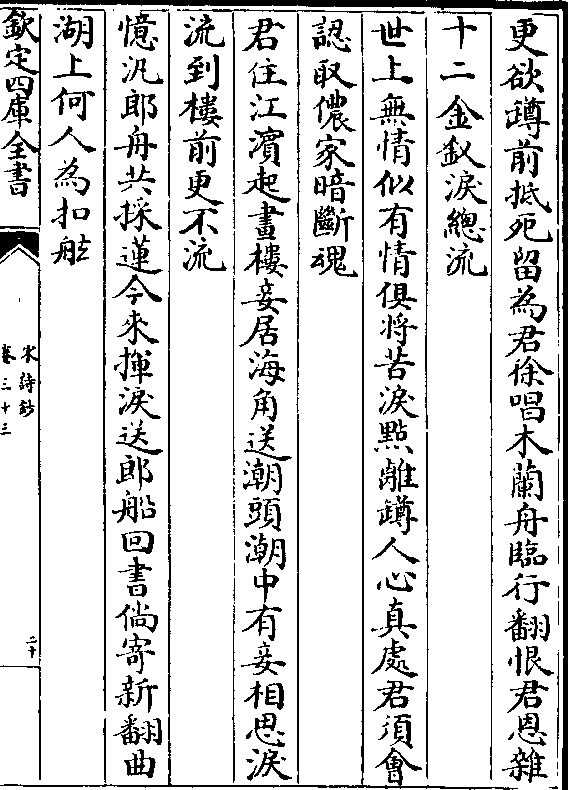 更欲蹲前抵死留為君徐唱木蘭舟臨行翻恨君恩雜
十二金釵淚總流
世上無情似有情俱將苦淚㸃離罇人心真處君須會
認取儂家暗斷魂
君住江濱起畫樓妾居海角送潮頭潮中有妾相思淚
流到樓前更不流
憶汎郎舟共採蓮今來揮淚送郎船回書倘寄新翻曲
湖上何人為扣舷
欽定四庫全書
宋詩鈔
卷三十三
二十